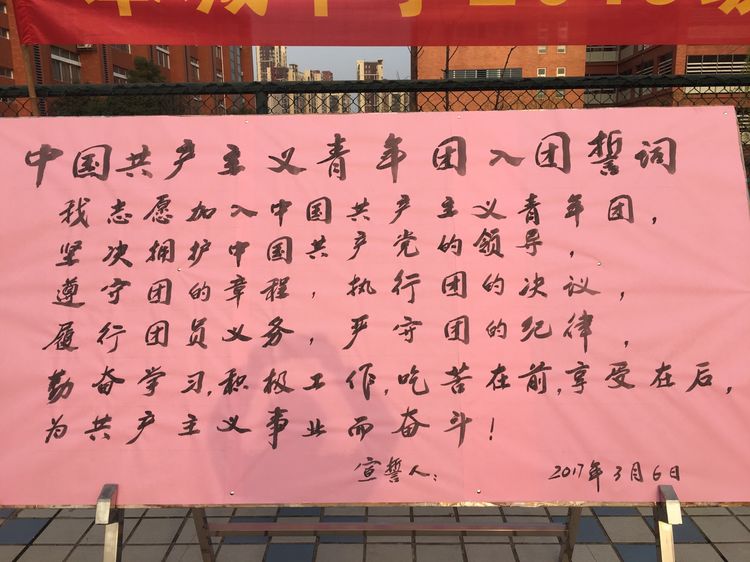 中国共产主义青年团入团誓词
我志愿加入中国共产主义青年团，
坚决拥护中国共产党的领导，
遵守团的章程，执行团的决议，
履行团员义务，严守团的纪律，
勤奋学习，积极工作，吃苦在前，享受在后，
为共产主义事业而奋斗！
宣誓人： 2017年3月6日